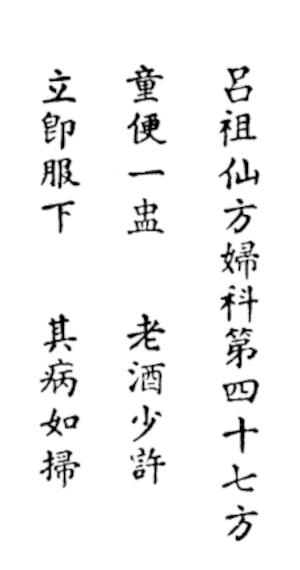 呂祖仙方婦科第四十七方
童便一盅　老酒少許
立卽服下　其病如掃